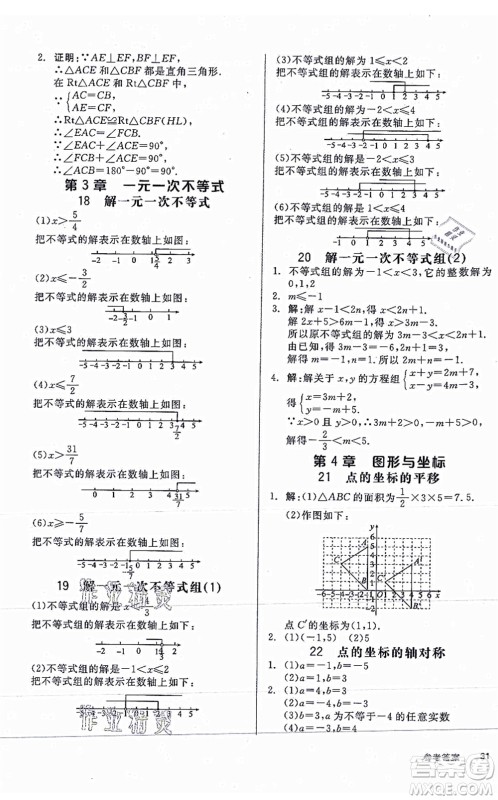 2. 证明:∵AE⊥EF,BF⊥EF,
∴△ACE和△CBF都是直角三角形.
在Rt△ACE和Rt△CBF中,
∵{AC=CB,
AE=CF,
∴Rt△ACE≌Rt△CBF(HL),
∴∠EAC=∠FCB.
∵∠EAC+∠ACE=90°,
∴∠FCB+∠ACE=90°,
∴∠ACB=180°-90°=90°.
第3章 一元一次不等式
18 解一元一次不等式
(1)x>5/4
把不等式的解表示在数轴上如图:
-2 -1 0 1 2 3
(2)x≤-3/2
把不等式的解表示在数轴上如图:
(3)x≤3
把不等式的解表示在数轴上如图:
-5-4-3-2-1 0 1 2 3 4 5
(4)x≤7/2
把不等式的解表示在数轴上如图:
(5)x>31/7
把不等式的解表示在数轴上如图:
(6)x≥-5/7
把不等式的解表示在数轴上如图:
19 解一元一次不等式组(1)
(1)不等式组的解是x<4/3
把不等式组的解表示在数轴上如下:
(2)不等式组的解是-1<x≤2
把不等式组的解表示在数轴上如下:
-5-4-3-2-1 0 1 2 3 4 5
(3)不等式组的解为1≤x<2
把不等式组的解表示在数轴上如下:
-5-4-3-2-1 0 1 2 3 4 5
(4)不等式组的解为-2<x≤4
把不等式组的解表示在数轴上如下:
-5-4-3-2-1 0 1 2 3 4 5
(5)不等式组的解为-1<x≤3
把不等式组的解表示在数轴上如下:
-5-4-3-2-1 0 1 2 3 4 5
(6)不等式组的解为1<x≤4
把不等式组的解表示在数轴上如下:
-5-4-3-2-1 0 1 2 3 4 5
20 解一元一次不等式组(2)
1. 不等式组的解为-1≤x<3,它的整数解为
-1,0,1,2.
2. m≤-1
3. 解:解x-1<2n,得x<2n+1.
解2x+5>6m-1,得x>3m-3.
所以原不等式组的解为3m-3<x<2n+1.
由已知,得3m-3=-6,2n+1=1.
解得m=-1,n=0.所以2m+n=-2.
4. 解:解关于x,y的方程组{x+y=5m+7,
x-y=m-3,
得{x=3m+2,
y=2m+5.
∵x>0,y>0,∴{3m+2>0,
2m+5>0,
解得-2/3<m<5.
第4章 图形与坐标
21 点的坐标的平移
1. 解:(1)△ABC的面积为1/2×3×5=7.5.
(2)作图如下:
点C′的坐标为(1,1).
2. (1)(-1,5) (2)5
22 点的坐标的轴对称
1. (1)a=-1,b=-5
(2)a=4,b=3
(3)a=-4,b=3
(4)a=-3,b为不等于-4的任意实数
(5)a=-3,b=4
作业精灵
作业精灵
参考答案 31